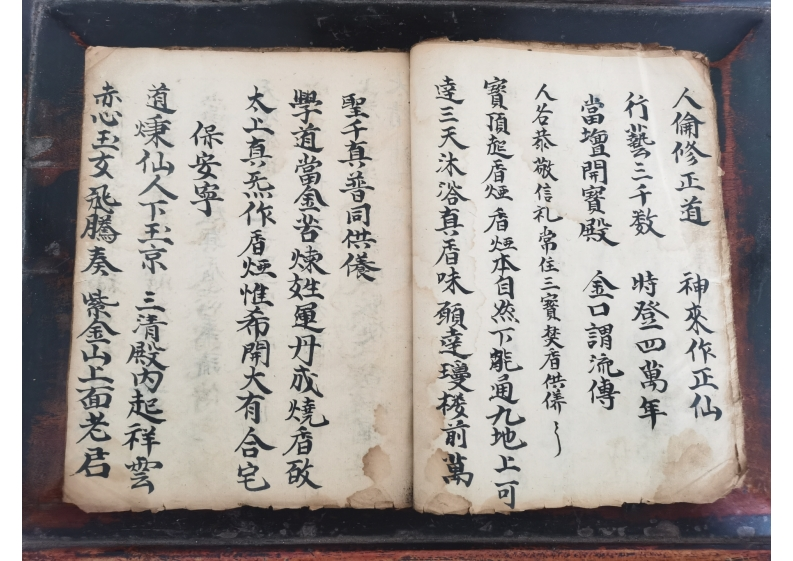 人倫修正道　神來作正仙
行藝三千数　時登四萬年
當壇開寳殿　金口謂流傳
人各恭敬信礼常住三寳焚香供養
寳頂起香烟香烟本自然下能通九地上可
達三天沐浴真香味願達瓊楼前萬
聖千真普同供養
學道當金苦煉姓運丹成燒香敀
太上真炁作香烟惟希開大有合宅
保安寧
道
仙人下玉京三清殿内起祥雲
赤心玉女飛騰奏紫金山上面老君